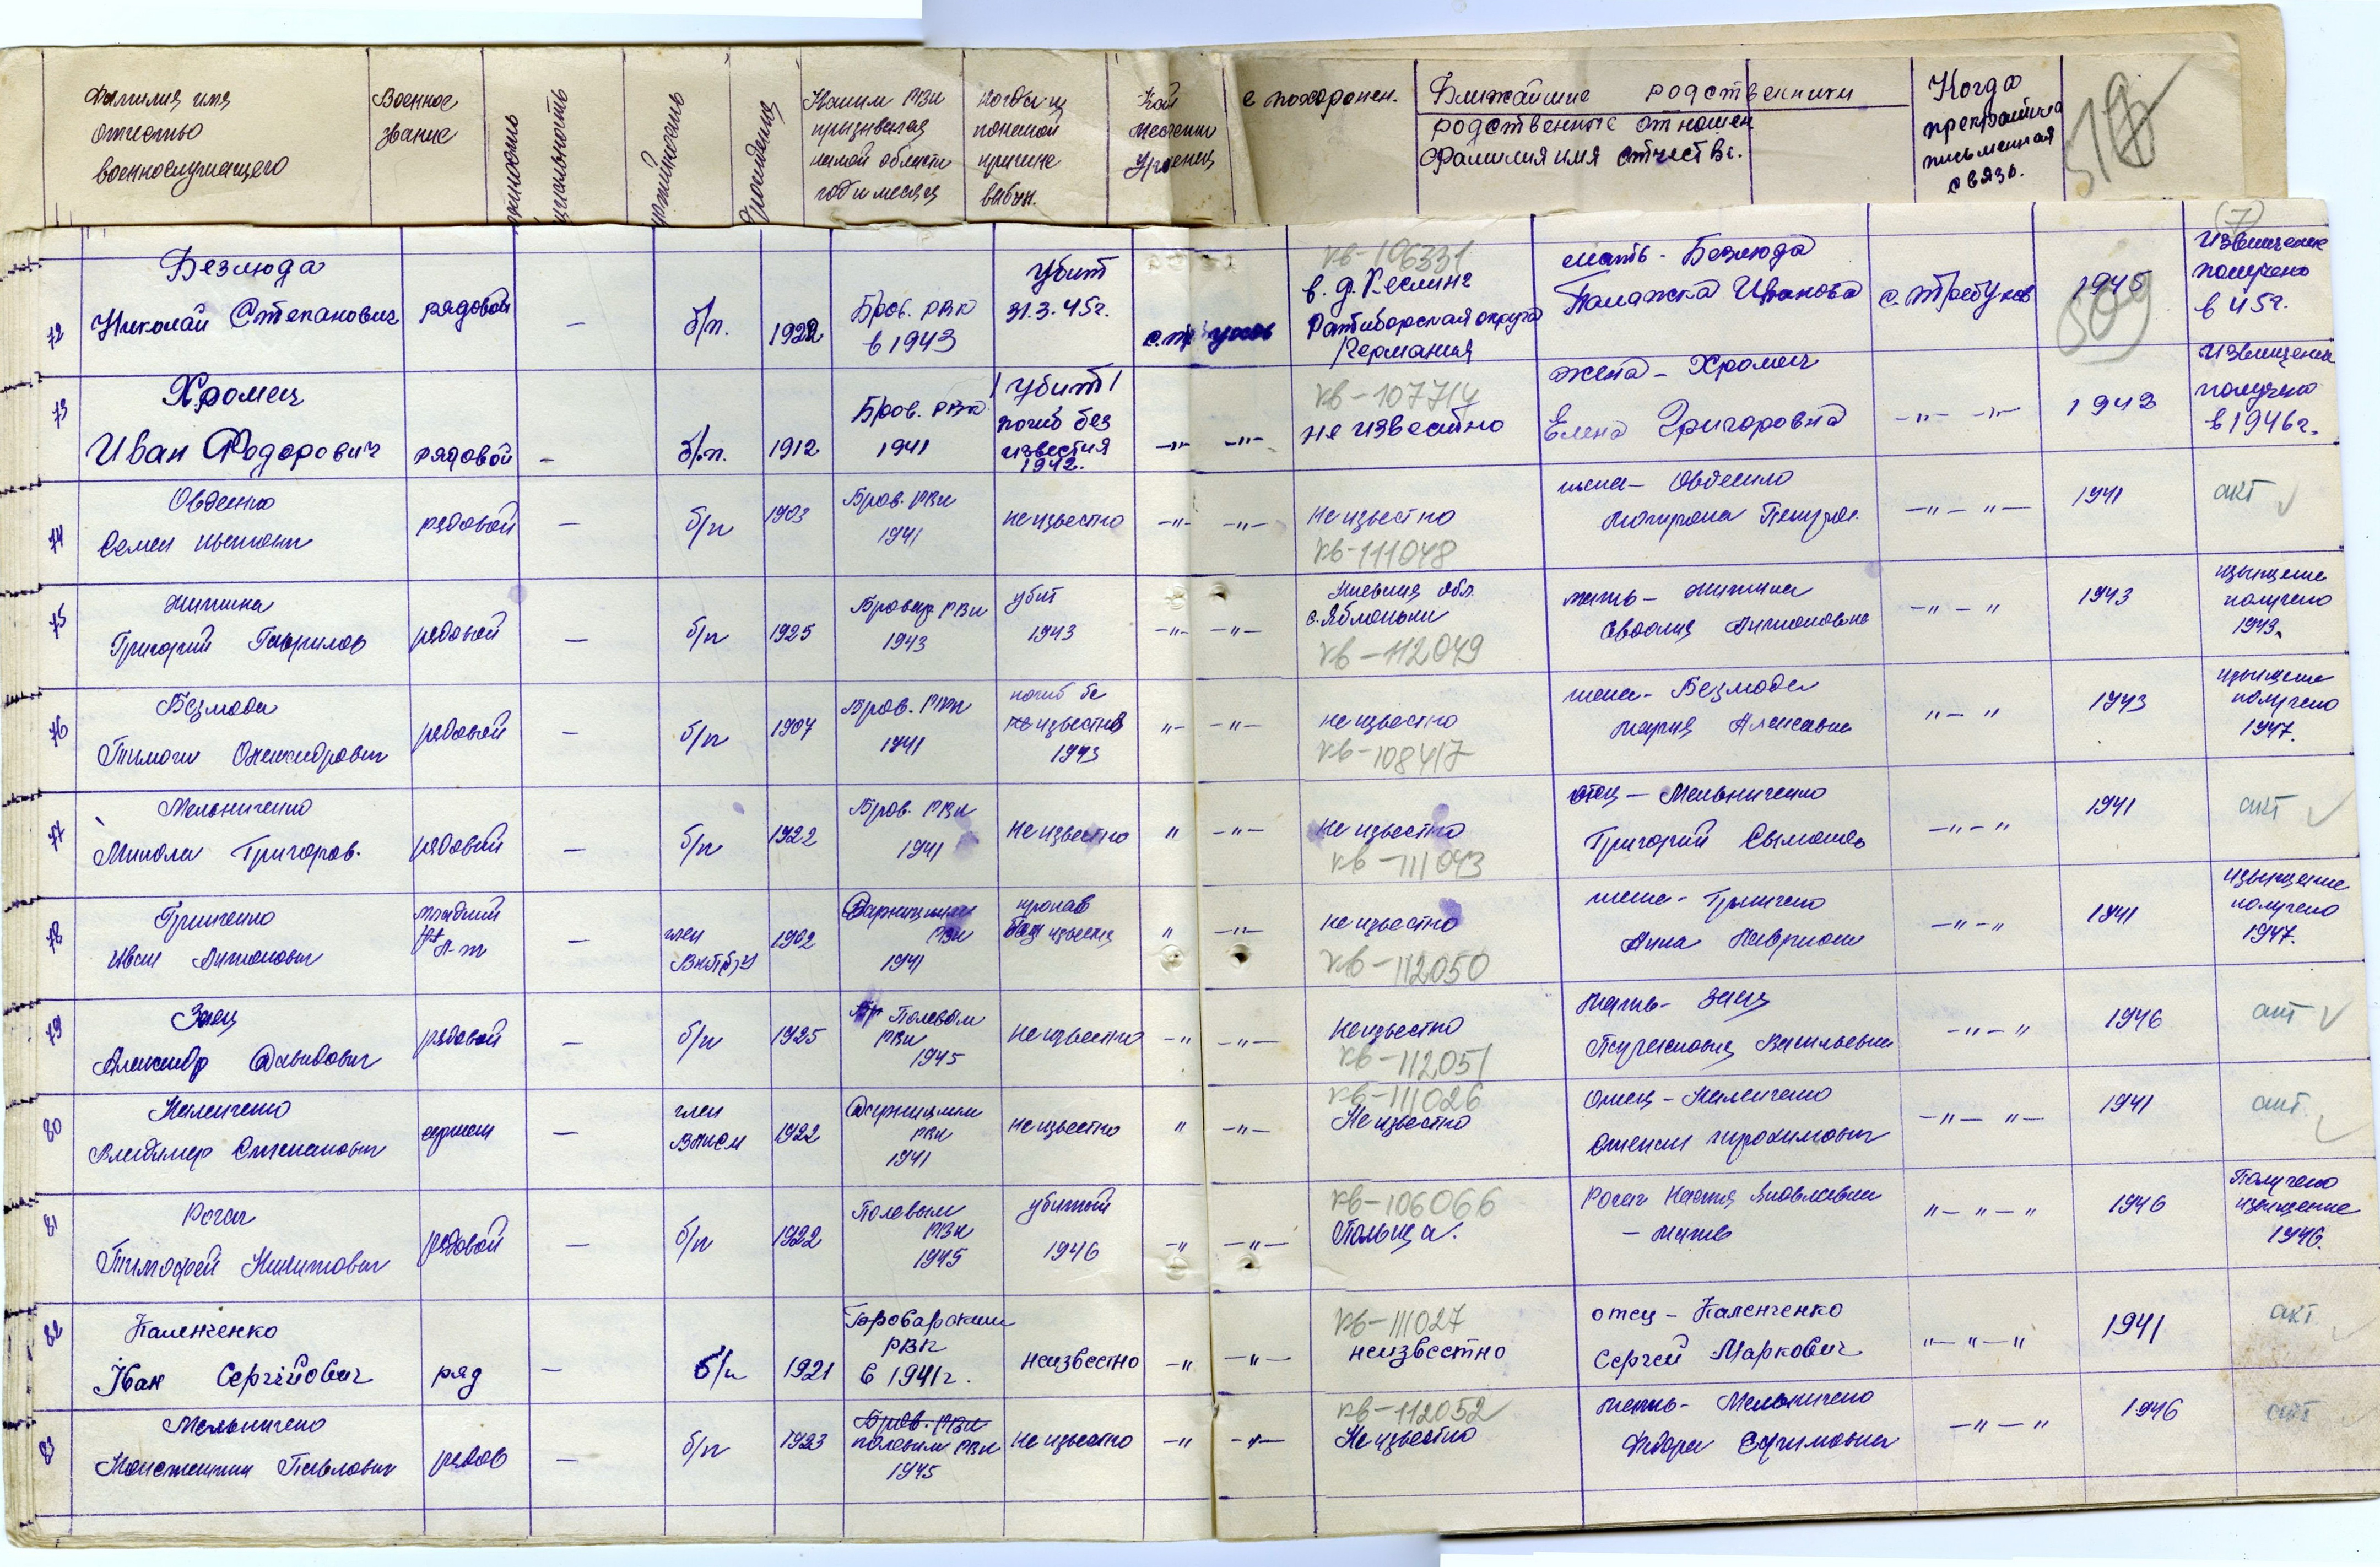 Фамилия имя
отчество
военнослужащего
Военное
звание
Каким РВК
призывался
какой области
год и месяц
когда и
по какой
причине
выбыл.
е похоронен.
Ближайшие родственники
родственные отношен
фамилия имя отчество.
Когда
прекратилась
письменная
связь.
(7)
72
Безлюда
Николай Степанович
рядовой
—
б/п.
1922
Бров. РВК
в 1943
Убит
31.3.45г.
кв-106331
в. д. Кеслинг
Ратиборская округа
Германия
мать - Безлюда
Палажка Иванова
с. Требухов
1945
509
Извещение
получено
в 45г.
73
Хромец
Иван Фодорович
рядовой
—
б/п.
1912
Бров. РВК
1941
/Убит/
погиб без
известия
1942.
—"— —"—
кв-107714
не известно
жена - Хромец
Елена Григоровна
—"— —"—
1943
Извещение
получено
в 1946г.
74
Овденко
Семен
рядовой
—
б/п
1903
Бров. РВК
1941
неизвестно
—"— —"—
Неизвестно
кв-111048
жена - Овденко
—"— "—
1941
акт
75
Григорий Гаврилов
рядовой
—
б/п
1925
Бровар РВК
1943
убит
1943
—"— —"—
Киевская обл.
с. Яблоньки
кв-112049
мать -
—"— "
1943
извещение
получено
1943.
76
Безлюда
Тимофи Олександрович
рядовой
—
б/п
1907
Бров. РВК
1941
погиб бе
известно
1943
"— —"—
неизвестно
кв-108417
жена - Безлюда
Мария Алексеевна
"— "
1943
извещение
получено
1947.
77
Мельниченко
Микола Григоров.
рядовой
—
б/п
1922
Бров. РВК
1941
Неизвестно
" —"—
Неизвестно
кв-111043
отец - Мельниченко
Григорий
—"— "
1941
акт
78
Гриненко
Иван Антонович
младший
л-т
—
член
ВКП(б)У
1902
Дарницким
РВК
1941
пропав
без известия
" —"—
неизвестно
кв-112050
жена - Гриненко
Анна
—"— "
1941
извещение
получено
1947.
79
Заец
Александр Давидович
рядовой
—
б/п
1925
Полевым
РВК
1945
Неизвестно
—" —"—
Неизвестно
кв-112051
мать - Заец
Васильевна
—"— "
1946
акт
80
Каленченко
Владимер Степанович
сержант
—
член
ВЛКСМ
1922
Дарницким
РВК
1941
неизвестно
" —"—
кв-111026
Неизвестно
Отец - Каленченко
Степан Трохимович
—"— "—
1941
акт.
81
Рогач
Тимофей Никитович
рядовой
—
б/п
1922
Полевым
РВК
1945
убитый
1946
—" —"—
кв-106066
Польща.
Рогач Настя Яковлевна
- мать
"— "— "
1946
Получено
извещение
1946.
82
Каленченко
Іван Сергійович
ряд
—
б/п
1921
Броварским
РВК
в 1941г.
неизвестно
—" —"—
кв-111027
неизвестно
отец - Каленченко
Сергей Маркович
"— "— "
1941
акт
83
Мельниченко
Константин Павлович
рядов
—
б/п
1923
Бров. РВК
полевым РВК
1945
Неизвестно
—" —"—
кв-112052
Неизвестно
мать - Мельниченко
Федора Ефимовна
—"— "
1946
акт